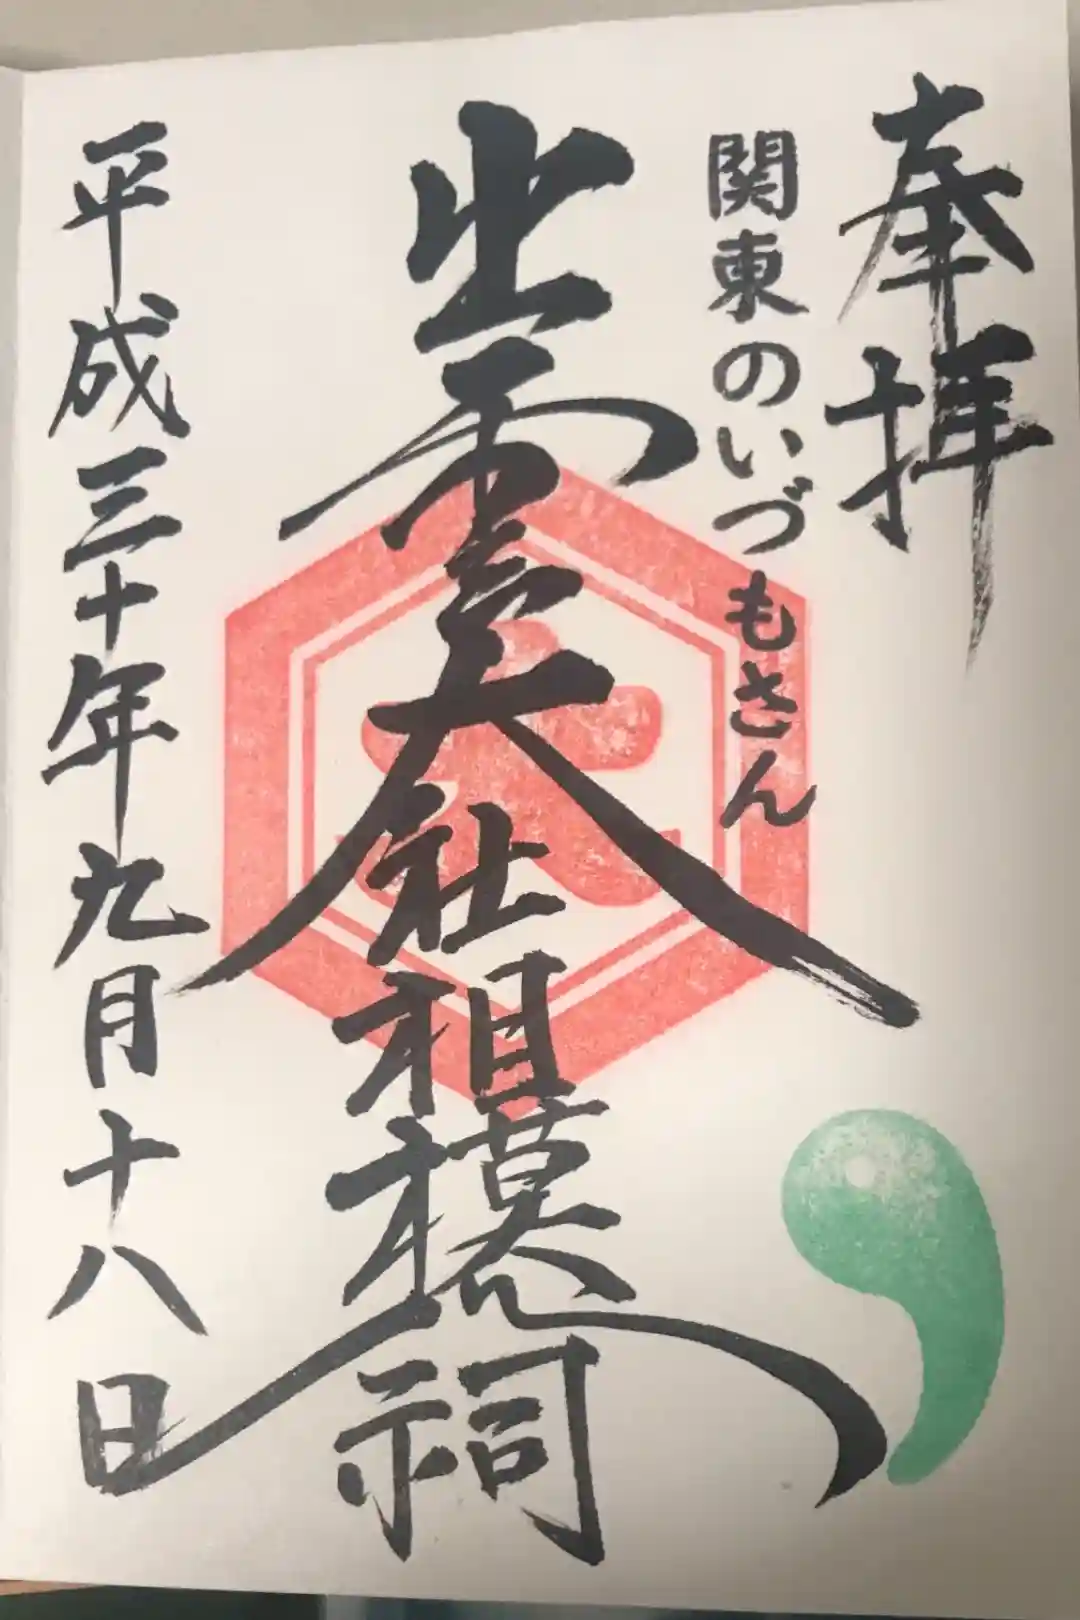 奉拝
関東のいづもさん
出雲大社相模祠
大
平成三十年九月十八日